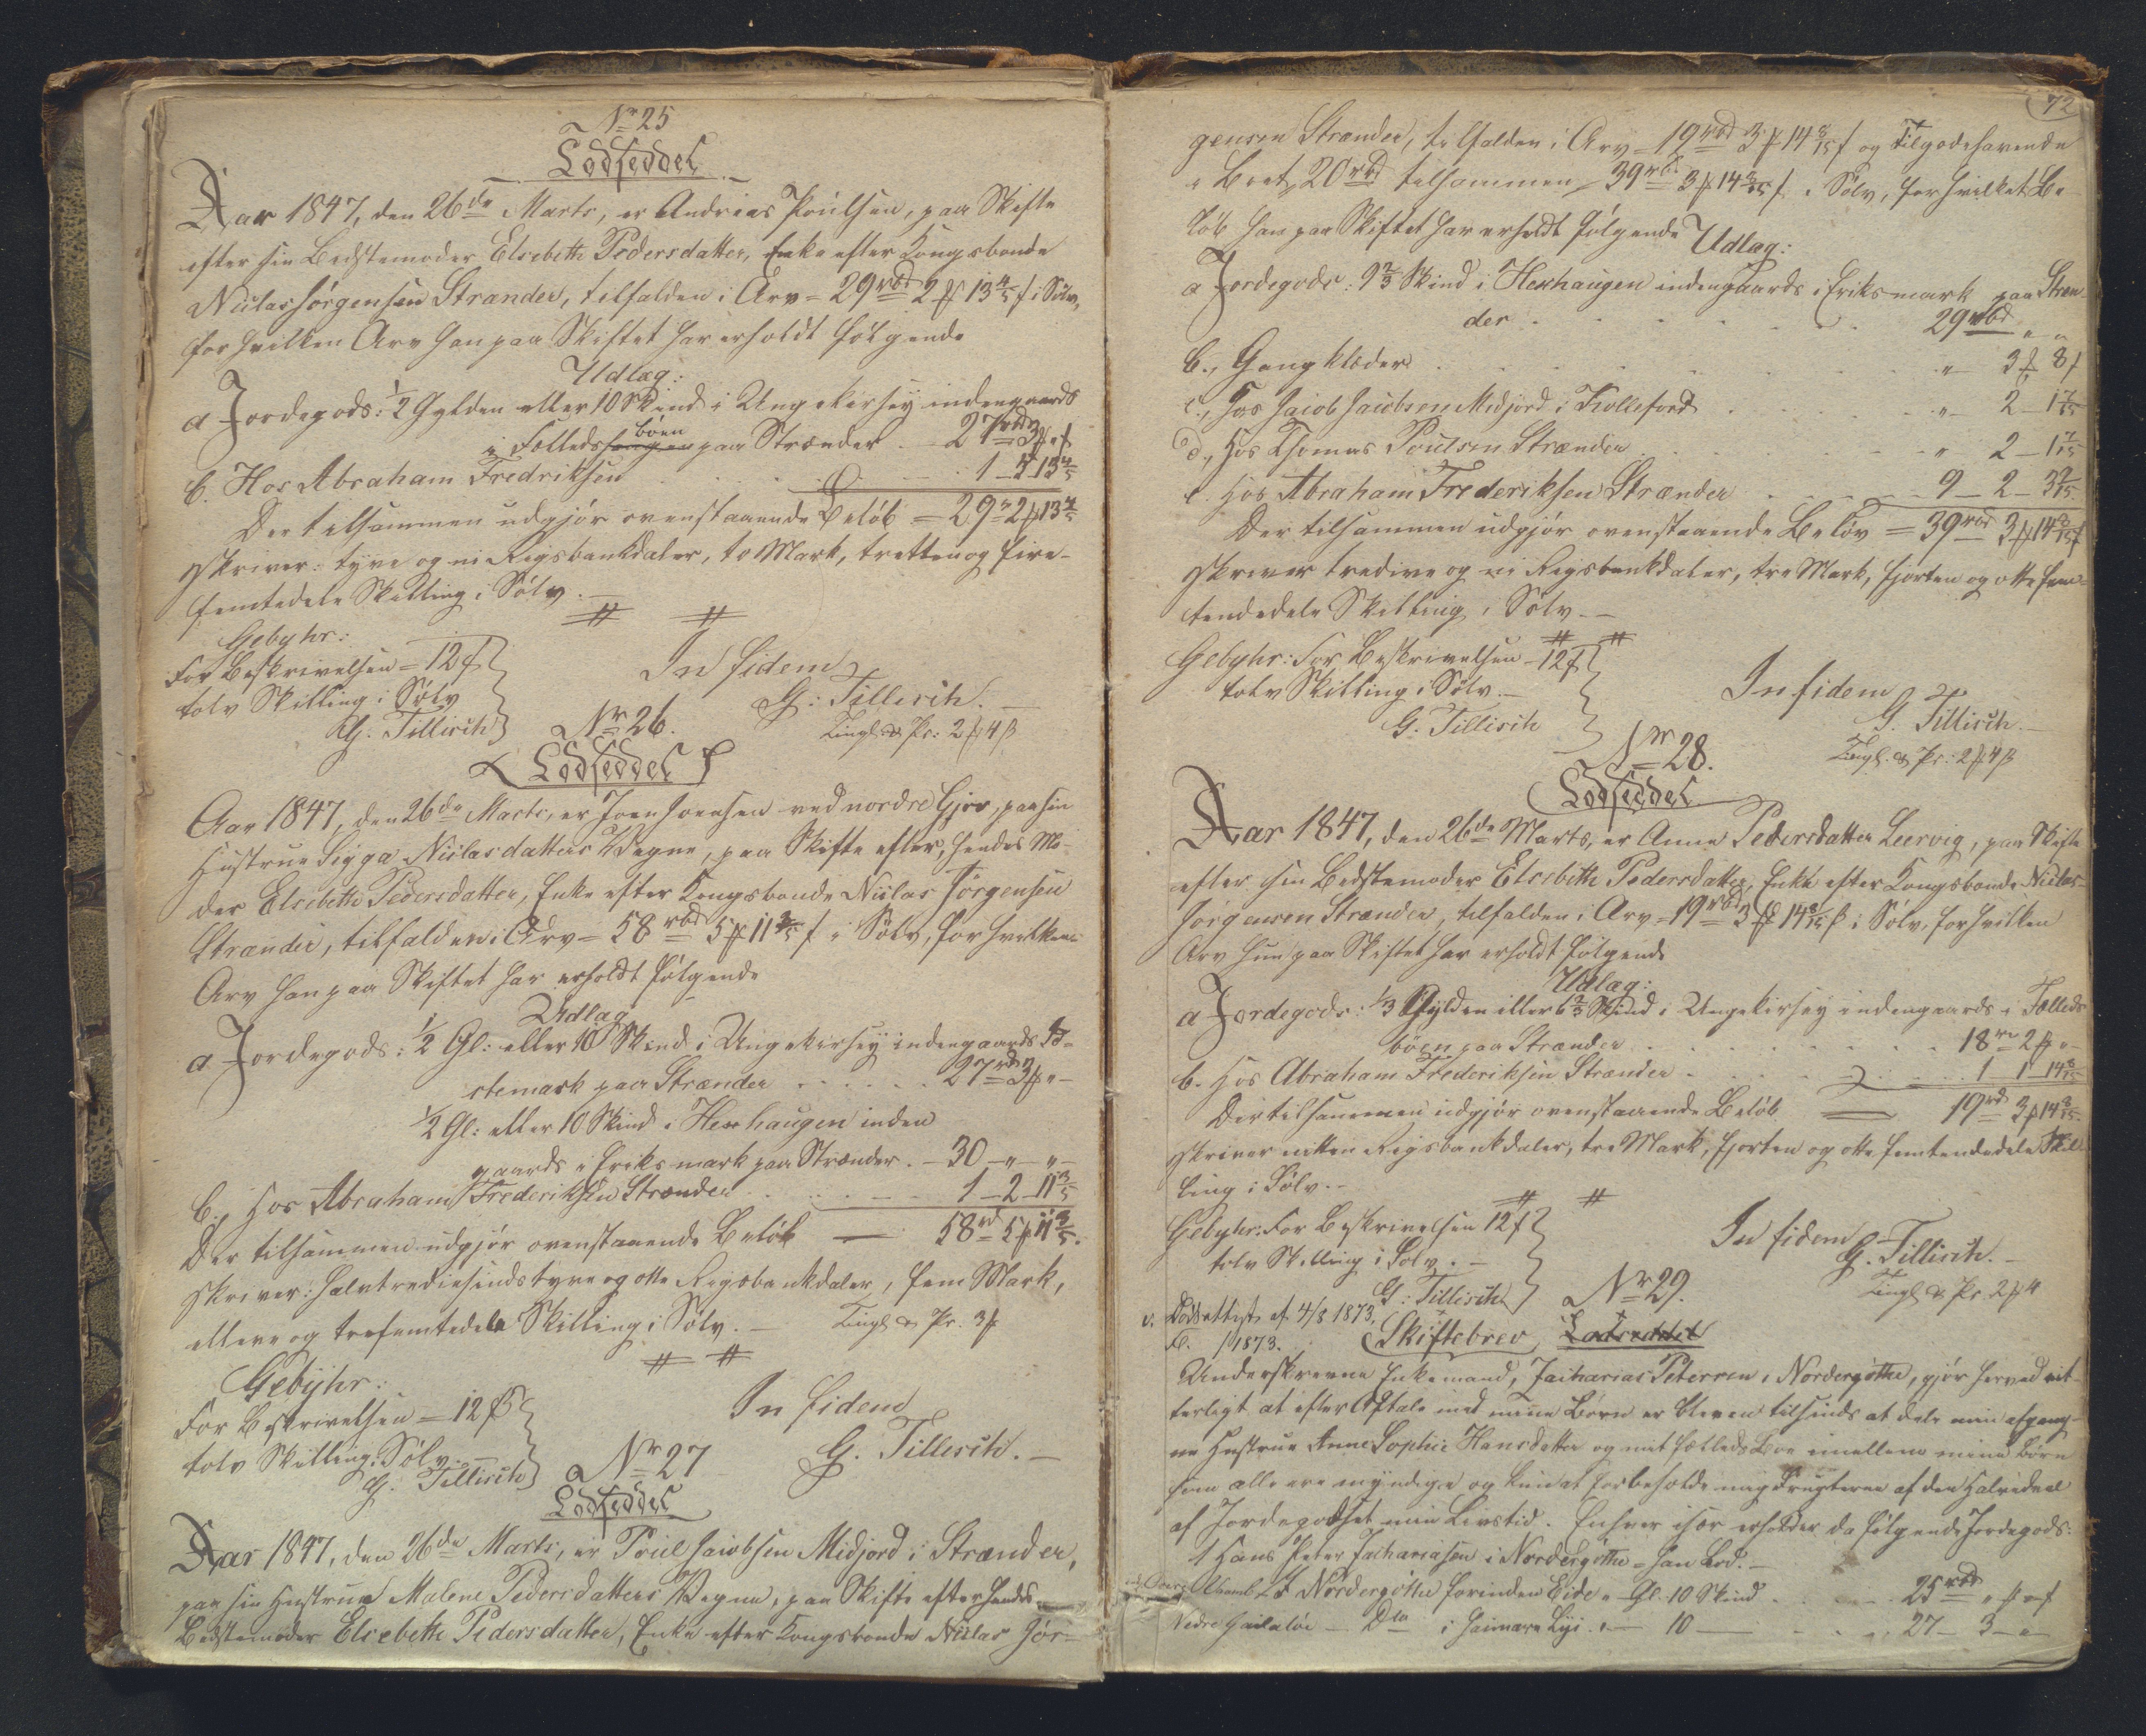 Nr 25
Lodseddel
Aar 1847, den 26de Marts, er Andreas Poulsen, paa Skifte
efter sin Bedstemoder Elsebeth Pedersdatter, Enke efter Kongsbonde
Niclas Jørgensen Strænder, tilfalden i Arv = 29 rbd 2 ₻ 13 4/5 ß i Sølv,
for hvilken Arv han paa Skiftet har erholdt følgende
Udlæg:
a Jordegods: 1/2 Gylden eller 10 Skind i Ungekirsey indengaards
i Fælleds bøen paa Strænder - 27 rbd 3 ₻ " ß
b. Hos Abraham Fredriksen . . . 1 - 5 13 4/5
Der tilsammen udgjør ovenstaaende Beløb = 29 - 2 ₻ 13 4/5
skriver: tyve og ni Rigsbankdaler, to Mark, tretten og fire-
femtedele Skilling i Sølv.
Gebyhr:
For Beskrivelsen = 12 ß
tolv Skilling i Sølv
G. Tillisch
In fidem
G: Tillisch.
Tingl. & Pr: 2 ₻ 4 ß
Nr 26.
Lodseddel
Aar 1847, den 26de Marts, er Joen Joensen ved nordre Gjov, paa sin
Hustrue Sigga Niclasdatters Vegne, paa Skifte efter hendes Mo-
der Elsebeth Pedersdatter, Enke efter Kongsbonde Niclas Jørgensen
Strænder, tilfalden i Arv = 58 rbd 5 ₻ 11 3/5 ß i Sølv, for hvilken
Arv han paa Skiftet har erholdt følgende
Udlæg
a Jordegods: 1/2 Gl: eller 10 Skind i Ungekirsey indengaards
stemark paa Strænder . . . . . . 27 rd 3 ₻ " -
1/2 Gl: eller 10 Skind i Hexhaugen inden
gaards i Eriksmark paa Strænder. - 30 - " " -
b., Hos Abraham Frederiksen Strænder . . . 1 - 2 - 11 3/5
Der tilsammen udgjør ovenstaaende Beløb — 58 rd 5 ₻ 11 3/5.
skriver: halvtrediesindstyve og otte Rigsbankdaler, fem Mark,
elleve og trefemtedele Skilling i Sølv. - Tingl. & Pr. 3 ₻
Gebyhr:
For Beskrivelsen = 12 ß
tolv Skilling i Sølv. -
G. Tillisch
In fidem
G. Tillisch. -
Nr 27
Lodseddel
Aar 1847, den 26de Marts, er Poul Jacobsen Midjord i Strænder,
paa sin Hustrue Malene Pedersdatters Vegne, paa Skifte efter hendes
Bedstemoder Elsebeth Pedersdatter, Enke efter Kongsbonde Niclas Jør-
72
gensen Strænder, tilfalden i Arv = 19 rbd 3 ₻ 14 8/15 ß og Tilgodehavende
i Boet 20 rbd tilsammen 39 rbd 3 ₻ 14 8/15 ß i Sølv, for hvilket Be-
løb han paa Skiftet har erholdt følgende Udlæg:
a Jordegods: 9 2/3 Skind i Hexhaugen indengaards i Eriksmark paa Stræn-
der . . . . . . 29 rbd " "
b., Gangklæder . . . " 3 ₻ 8 ß
c., Hos Jacob Jacobsen Midjord i Kollefjord . . . " 2 - 1 7/15
d., Hos Thomas Poulsen Strænder . . . " 2 - 1 7/15
e. Hos Abraham Frederiksen Strænder . . . 9 - 2 - 3 9/15
Der tilsammen udgjør ovenstaaende Beløb = 39 rbd 3 ₻ 14 8/15 ß
skriver tredive og ni Rigsbankdaler, tre Mark, fjorten og otte fem-
tendedele Skilling i Sølv. -
Gebyhr: For Beskrivelsen = 12 ß
tolv Skilling i Sølv. -
G. Tillisch
In fidem
G. Tillisch. -
Tingl. & Pr: 2 ₻ 4 ß
Nr 28.
Lodseddel
Aar 1847, den 26de Marts, er Anna Pedersdatter Leervig, paa Skifte
efter sin Bedstemoder Elsebeth Pedersdatter, Enke efter Kongsbonde Niclas
Jørgensen Strænder, tilfalden i Arv = 19 rbd 3 ₻ 14 8/15 ß i Sølv, for hvilken
Arv hun paa Skiftet har erholdt følgende
Udlæg:
a Jordegods: 1/3 Gylden eller 6 2/3 Skind i Ungekirsey indengaards i Fælleds
bøen paa Strænder . . . 18 rd 2 ₻ " -
b. Hos Abraham Frederiksen Strænder . . . 1 - 1 - 14 8/15
Der tilsammen udgjør ovenstaaende Beløb = 19 rd 3 ₻ 14 8/15
skriver nitten Rigsbankdaler, tre Mark, fjorten og otte femtendedele Skil
ling i Sølv. -
Gebyhr: For Beskrivelsen 12 ß
tolv Skilling i Sølv. -
G: Tillisch
In fidem
G. Tillisch. -
Tingl. & Pr. 2 ₻ 4
Nr 29.
v. Dødsattest af 4/8 1873,
1873.
Skiftebrev Lodseddel
Underskrevne Enkemand, Zacharias Petersen, i Nordergøthe, gjør herved vit-
terligt at efter Aftale med mine Børn er bleven tilsinds at dele min afgang-
ne Hustrue Anne Sophie Hansdatter og mit Fælleds Boe imellem mine Børn
som alle ere myndige og kun at forbeholde mig Frugterne af den Halvedeel
af Jordegodset min Livstid. Enhver især erholder da følgende Jordegods:
1 Hans Peter Zachariasen i Nordergøthe = han Lod. -
i Nordergøthe forinden Eide " Gl. 10 Skind . . . 25 rbd " ₻ " ß
- Dto i - 10 - . . . 27 - 3 - " -